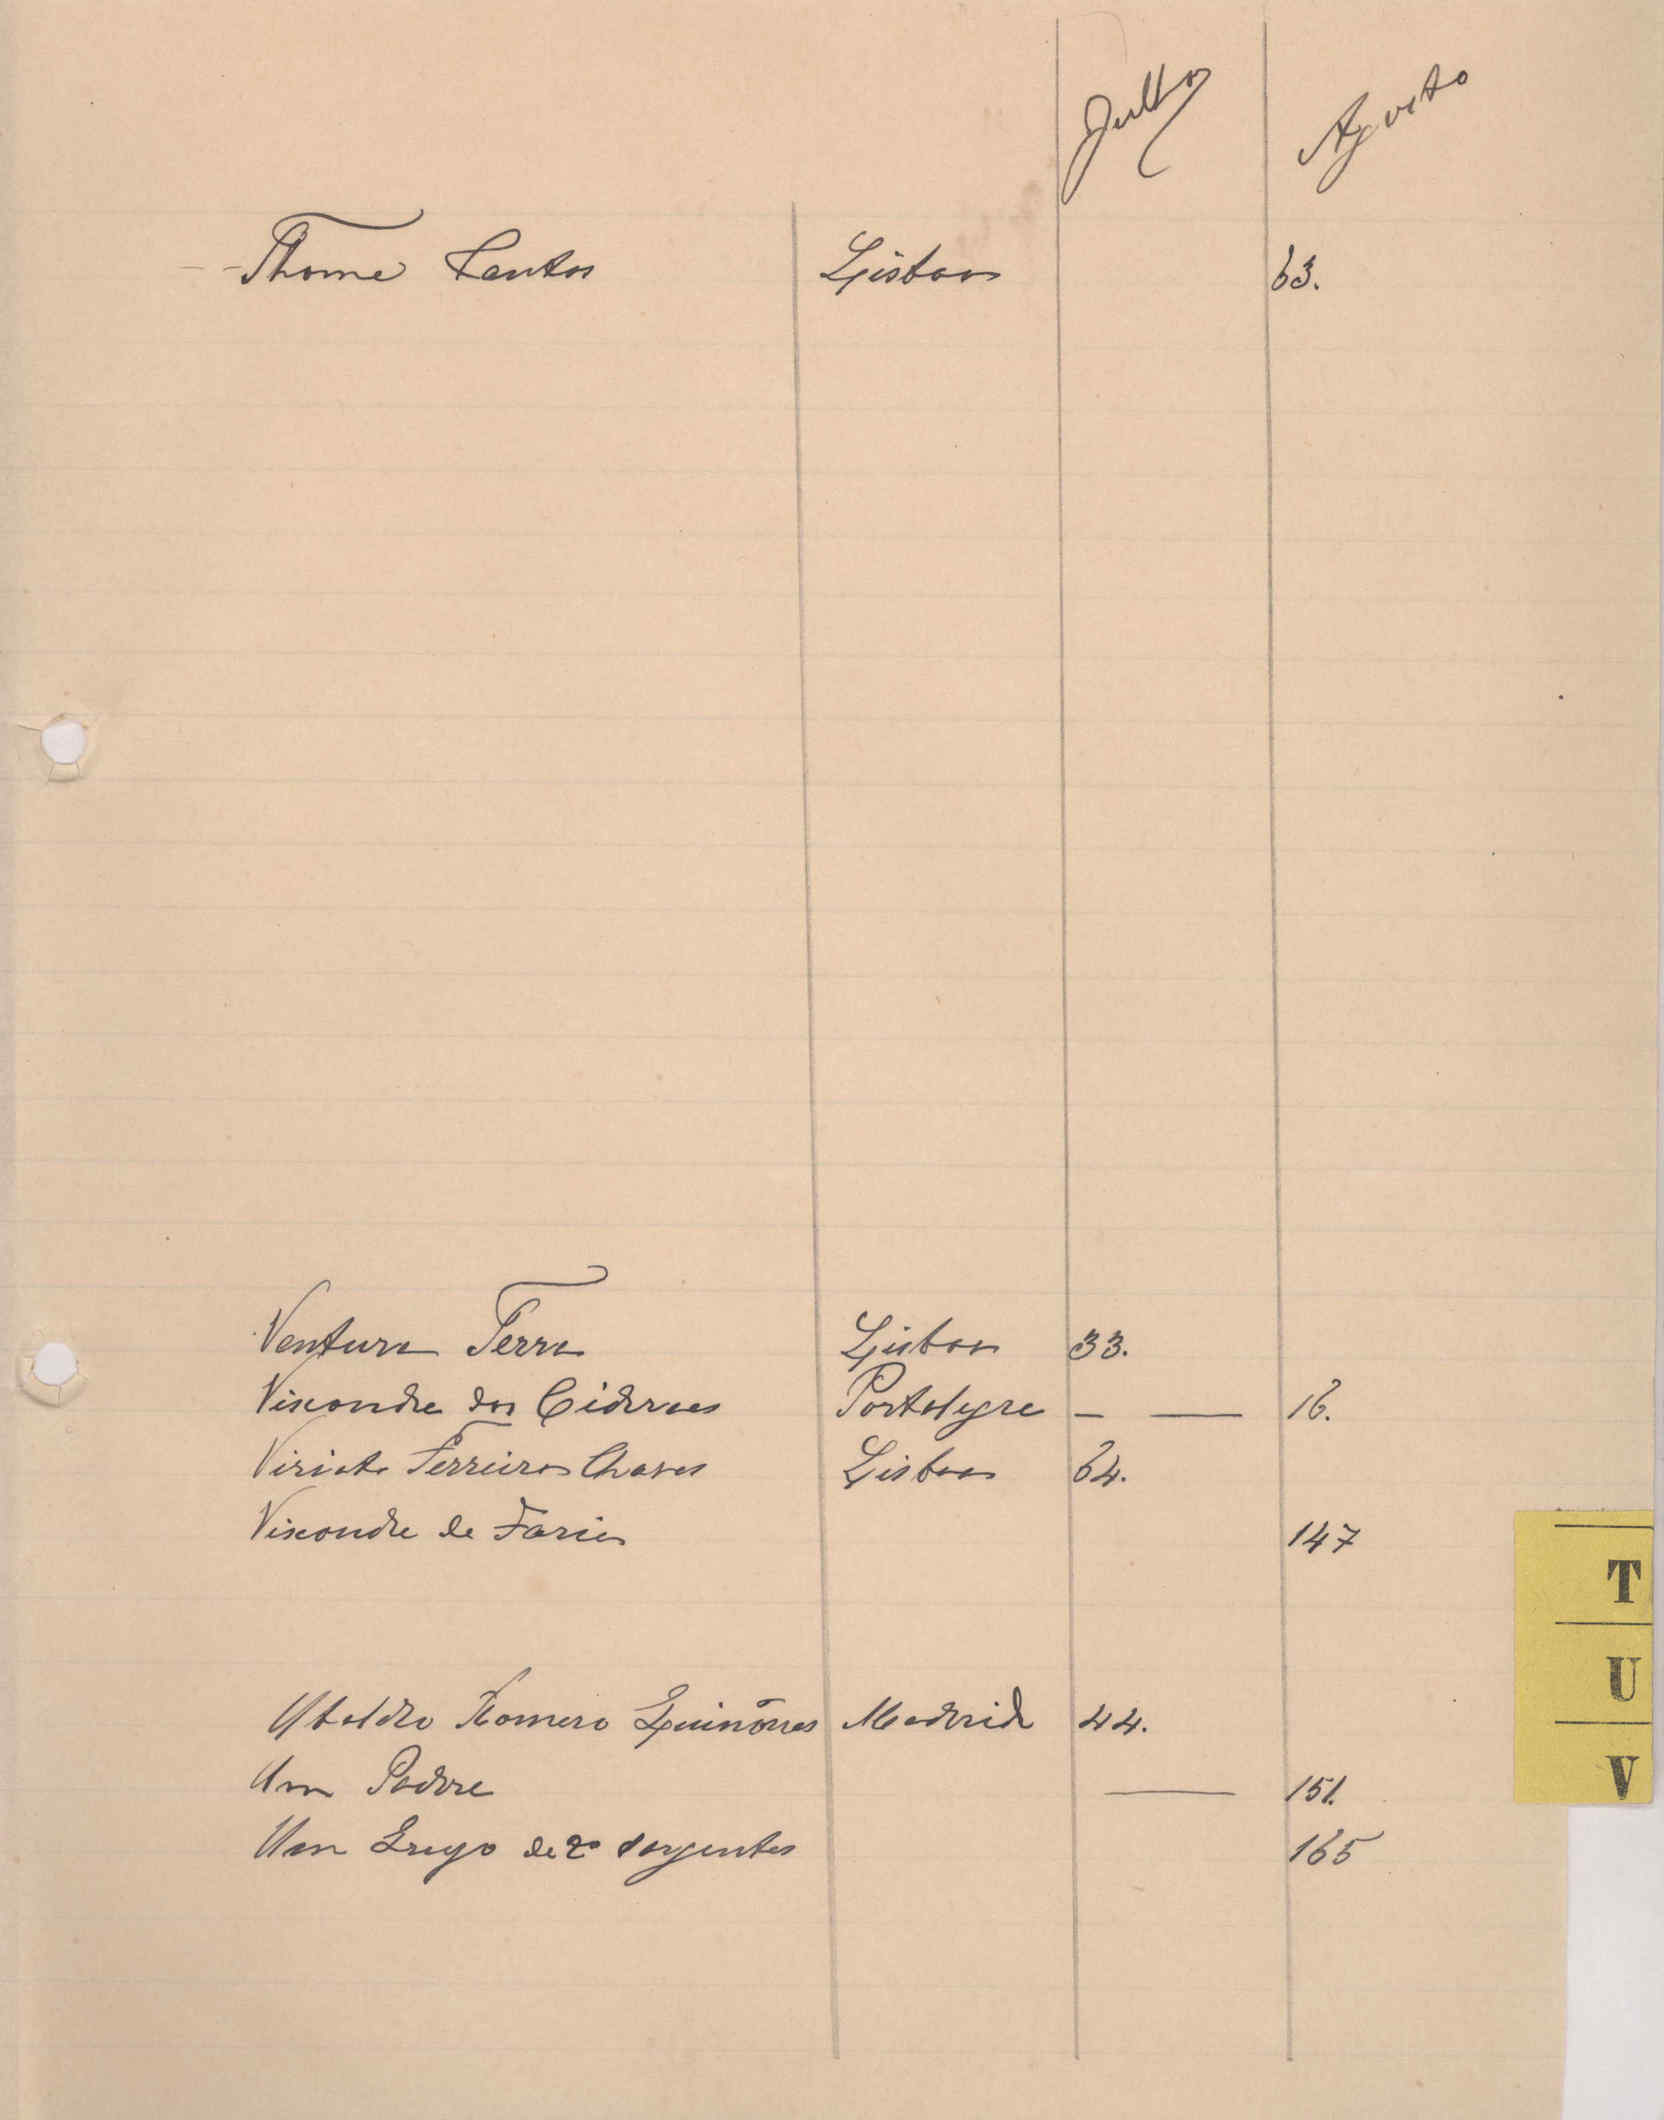 Julho Agosto
Thomé Santos Lisboa 63.
Ventura Terra Lisboa 33.
Visconde dos Cidraes Portalegre — — 16.
Viriato Ferreira Chaves Lisboa 64.
Visconde de Faria 147
T
U
V
Ubaldo Romero Quiñones Madrid 44.
Um Padre — 151.
Um Grupo de 2os sargentos 165